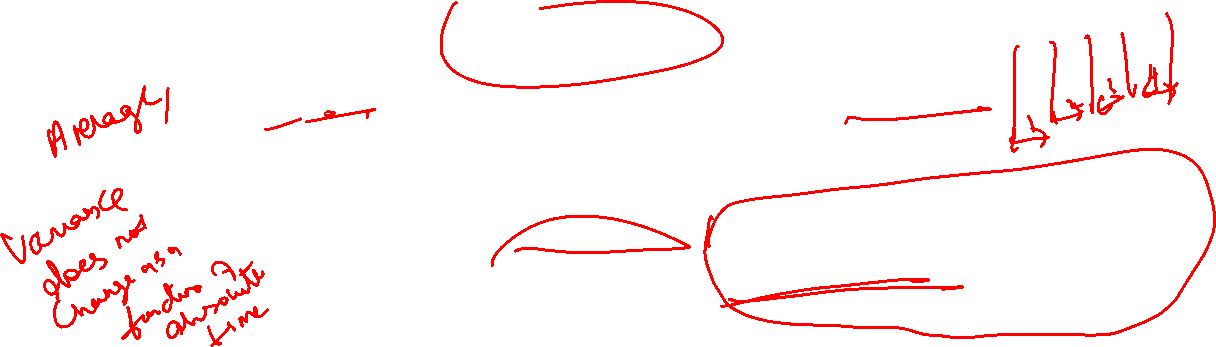 Average
Variance
does not
Change as a
function of
absolute
time